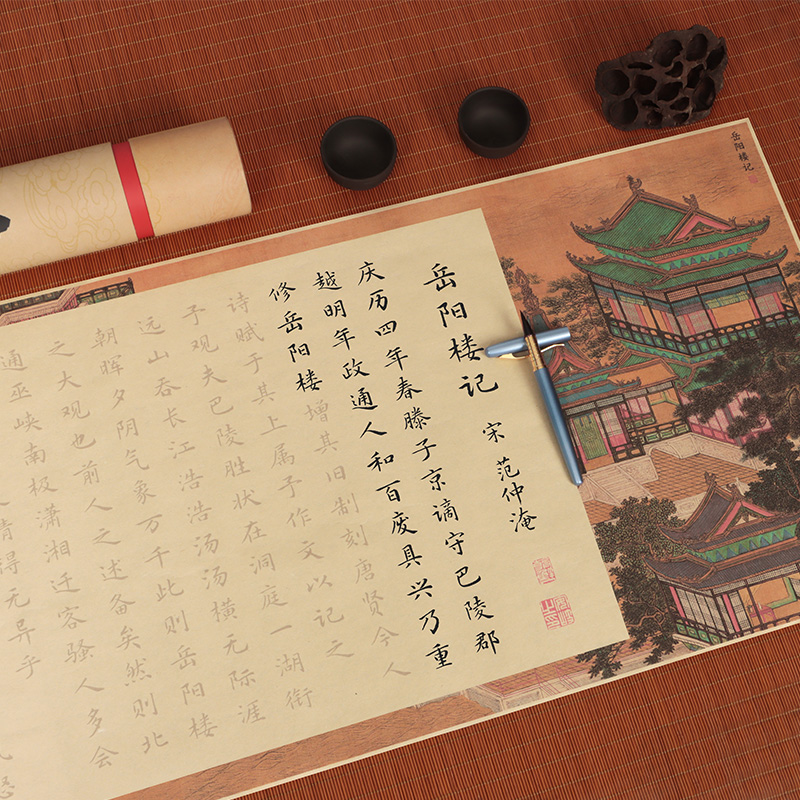 岳阳楼记
岳阳楼记
宋 范仲淹
庆历四年春滕子京谪守巴陵郡
越明年政通人和百废具兴乃重
修岳阳楼增其旧制刻唐贤今人
诗赋于其上属予作文以记之
予观夫巴陵胜状在洞庭一湖衔
远山吞长江浩浩汤汤横无际涯
朝晖夕阴气象万千此则岳阳楼
之大观也前人之述备矣然则北
通巫峡南极潇湘迁客骚人多会
情得无异乎